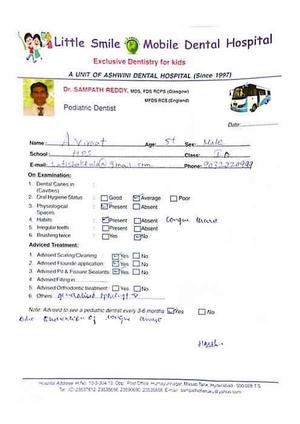 Little Smile Mobile Dental Hospital
Exclusive Dentistry for kids
A UNIT OF ASHWINI DENTAL HOSPITAL (Since 1997)
Dr. SAMPATH REDDY, MDS, FDS RCPS (Glasgow)
MFDS RCS (England)
Pediatric Dentist
Date:
Name: Age: 5+ Sex: Male
School: HPS Class:
E-mail: @gmail.com Phone:
On Examination:
1. Dental Caries in : (Cavities)
2. Oral Hygiene Status : Good Average Poor
3. Physiological Spaces : Present Absent
4. Habits : Present Absent tongue thrust
5. Irregular teeth : Present Absent
6. Brushing twice : Yes No
Adviced Treatment:
1. Advised Scaling/Cleaning : Yes No
2. Advised Flouride application : Yes No
3. Advised Pit & Fissure Sealants : Yes No
4. Advised Filling in
5. Advised Orthodontic treatment : Yes No
6. Others: generalised
Note: Advised to see a pediatric dentist every 3-6 months Yes No
of tongue thrust
Hospital Address: H.No. 10-3-304/13, Opp. Post Office, Humayunnagar, Masab Tank, Hyderabad - 500 028 T.S.